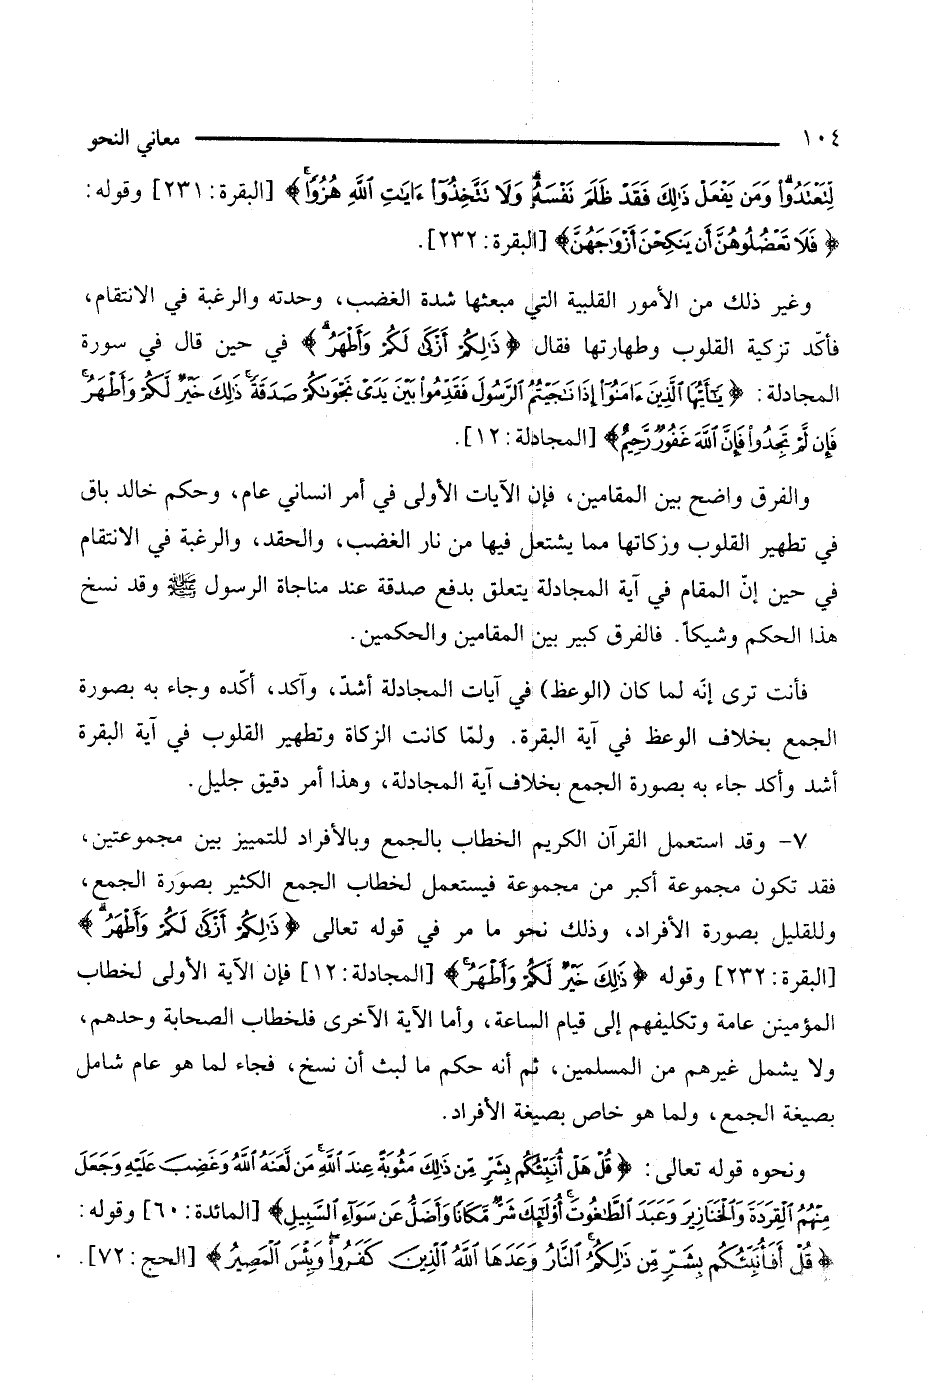 ١٠٤ معاني النحو
لِّتَعْتَدُوا۟ وَمَن يَفْعَلْ ذَٰلِكَ فَقَدْ ظَلَمَ نَفْسَهُۥ وَلَا تَتَّخِذُوٓا۟ ءَايَٰتِ ٱللَّهِ هُزُوًا﴾ [البقرة: ٢٣١] وقوله:
﴿فَلَا تَعْضُلُوهُنَّ أَن يَنكِحْنَ أَزْوَٰجَهُنَّ﴾ [البقرة: ٢٣٢].
وغير ذلك من الأمور القلبية التي مبعثها شدة الغضب، وحدته والرغبة في الانتقام،
فأكّد تزكية القلوب وطهارتها فقال ﴿ذَٰلِكُمْ أَزْكَىٰ لَكُمْ وَأَطْهَرُ﴾ في حين قال في سورة
المجادلة: ﴿يَٰٓأَيُّهَا ٱلَّذِينَ ءَامَنُوٓا۟ إِذَا نَٰجَيْتُمُ ٱلرَّسُولَ فَقَدِّمُوا۟ بَيْنَ يَدَىْ نَجْوَىٰكُمْ صَدَقَةً ذَٰلِكَ خَيْرٌ لَّكُمْ وَأَطْهَرُ
فَإِن لَّمْ تَجِدُوا۟ فَإِنَّ ٱللَّهَ غَفُورٌ رَّحِيمٌ﴾ [المجادلة: ١٢].
والفرق واضح بين المقامين، فإن الآيات الأولى في أمر انساني عام، وحكم خالد باق
في تطهير القلوب وزكاتها مما يشتعل فيها من نار الغضب، والحقد، والرغبة في الانتقام
في حين إنّ المقام في آية المجادلة يتعلق بدفع صدقة عند مناجاة الرسول ﷺ وقد نسخ
هذا الحكم وشيكاً. فالفرق كبير بين المقامين والحكمين.
فأنت ترى إنّه لما كان (الوعظ) في آيات المجادلة أشدّ، وآكد، أكّده وجاء به بصورة
الجمع بخلاف الوعظ في آية البقرة. ولمّا كانت الزكاة وتطهير القلوب في آية البقرة
أشد وأكد جاء به بصورة الجمع بخلاف آية المجادلة، وهذا أمر دقيق جليل.
٧- وقد استعمل القرآن الكريم الخطاب بالجمع وبالأفراد للتمييز بين مجموعتين،
فقد تكون مجموعة أكبر من مجموعة فيستعمل لخطاب الجمع الكثير بصورة الجمع،
وللقليل بصورة الأفراد، وذلك نحو ما مر في قوله تعالى ﴿ذَٰلِكُمْ أَزْكَىٰ لَكُمْ وَأَطْهَرُ﴾
[البقرة: ٢٣٢] وقوله ﴿ذَٰلِكَ خَيْرٌ لَّكُمْ وَأَطْهَرُ﴾ [المجادلة: ١٢] فإن الآية الأولى لخطاب
المؤمينن عامة وتكليفهم إلى قيام الساعة، وأما الآية الآخرى فلخطاب الصحابة وحدهم،
ولا يشمل غيرهم من المسلمين، ثم أنه حكم ما لبث أن نسخ، فجاء لما هو عام شامل
بصيغة الجمع، ولما هو خاص بصيغة الأفراد.
ونحوه قوله تعالى: ﴿قُلْ هَلْ أُنَبِّئُكُم بِشَرٍّ مِّن ذَٰلِكَ مَثُوبَةً عِندَ ٱللَّهِ مَن لَّعَنَهُ ٱللَّهُ وَغَضِبَ عَلَيْهِ وَجَعَلَ
مِنْهُمُ ٱلْقِرَدَةَ وَٱلْخَنَازِيرَ وَعَبَدَ ٱلطَّٰغُوتَ أُو۟لَٰٓئِكَ شَرٌّ مَّكَانًا وَأَضَلُّ عَن سَوَآءِ ٱلسَّبِيلِ﴾ [المائدة: ٦٠] وقوله:
﴿قُلْ أَفَأُنَبِّئُكُم بِشَرٍّ مِّن ذَٰلِكُمُ ٱلنَّارُ وَعَدَهَا ٱللَّهُ ٱلَّذِينَ كَفَرُوا۟ وَبِئْسَ ٱلْمَصِيرُ﴾ [الحج: ٧٢].